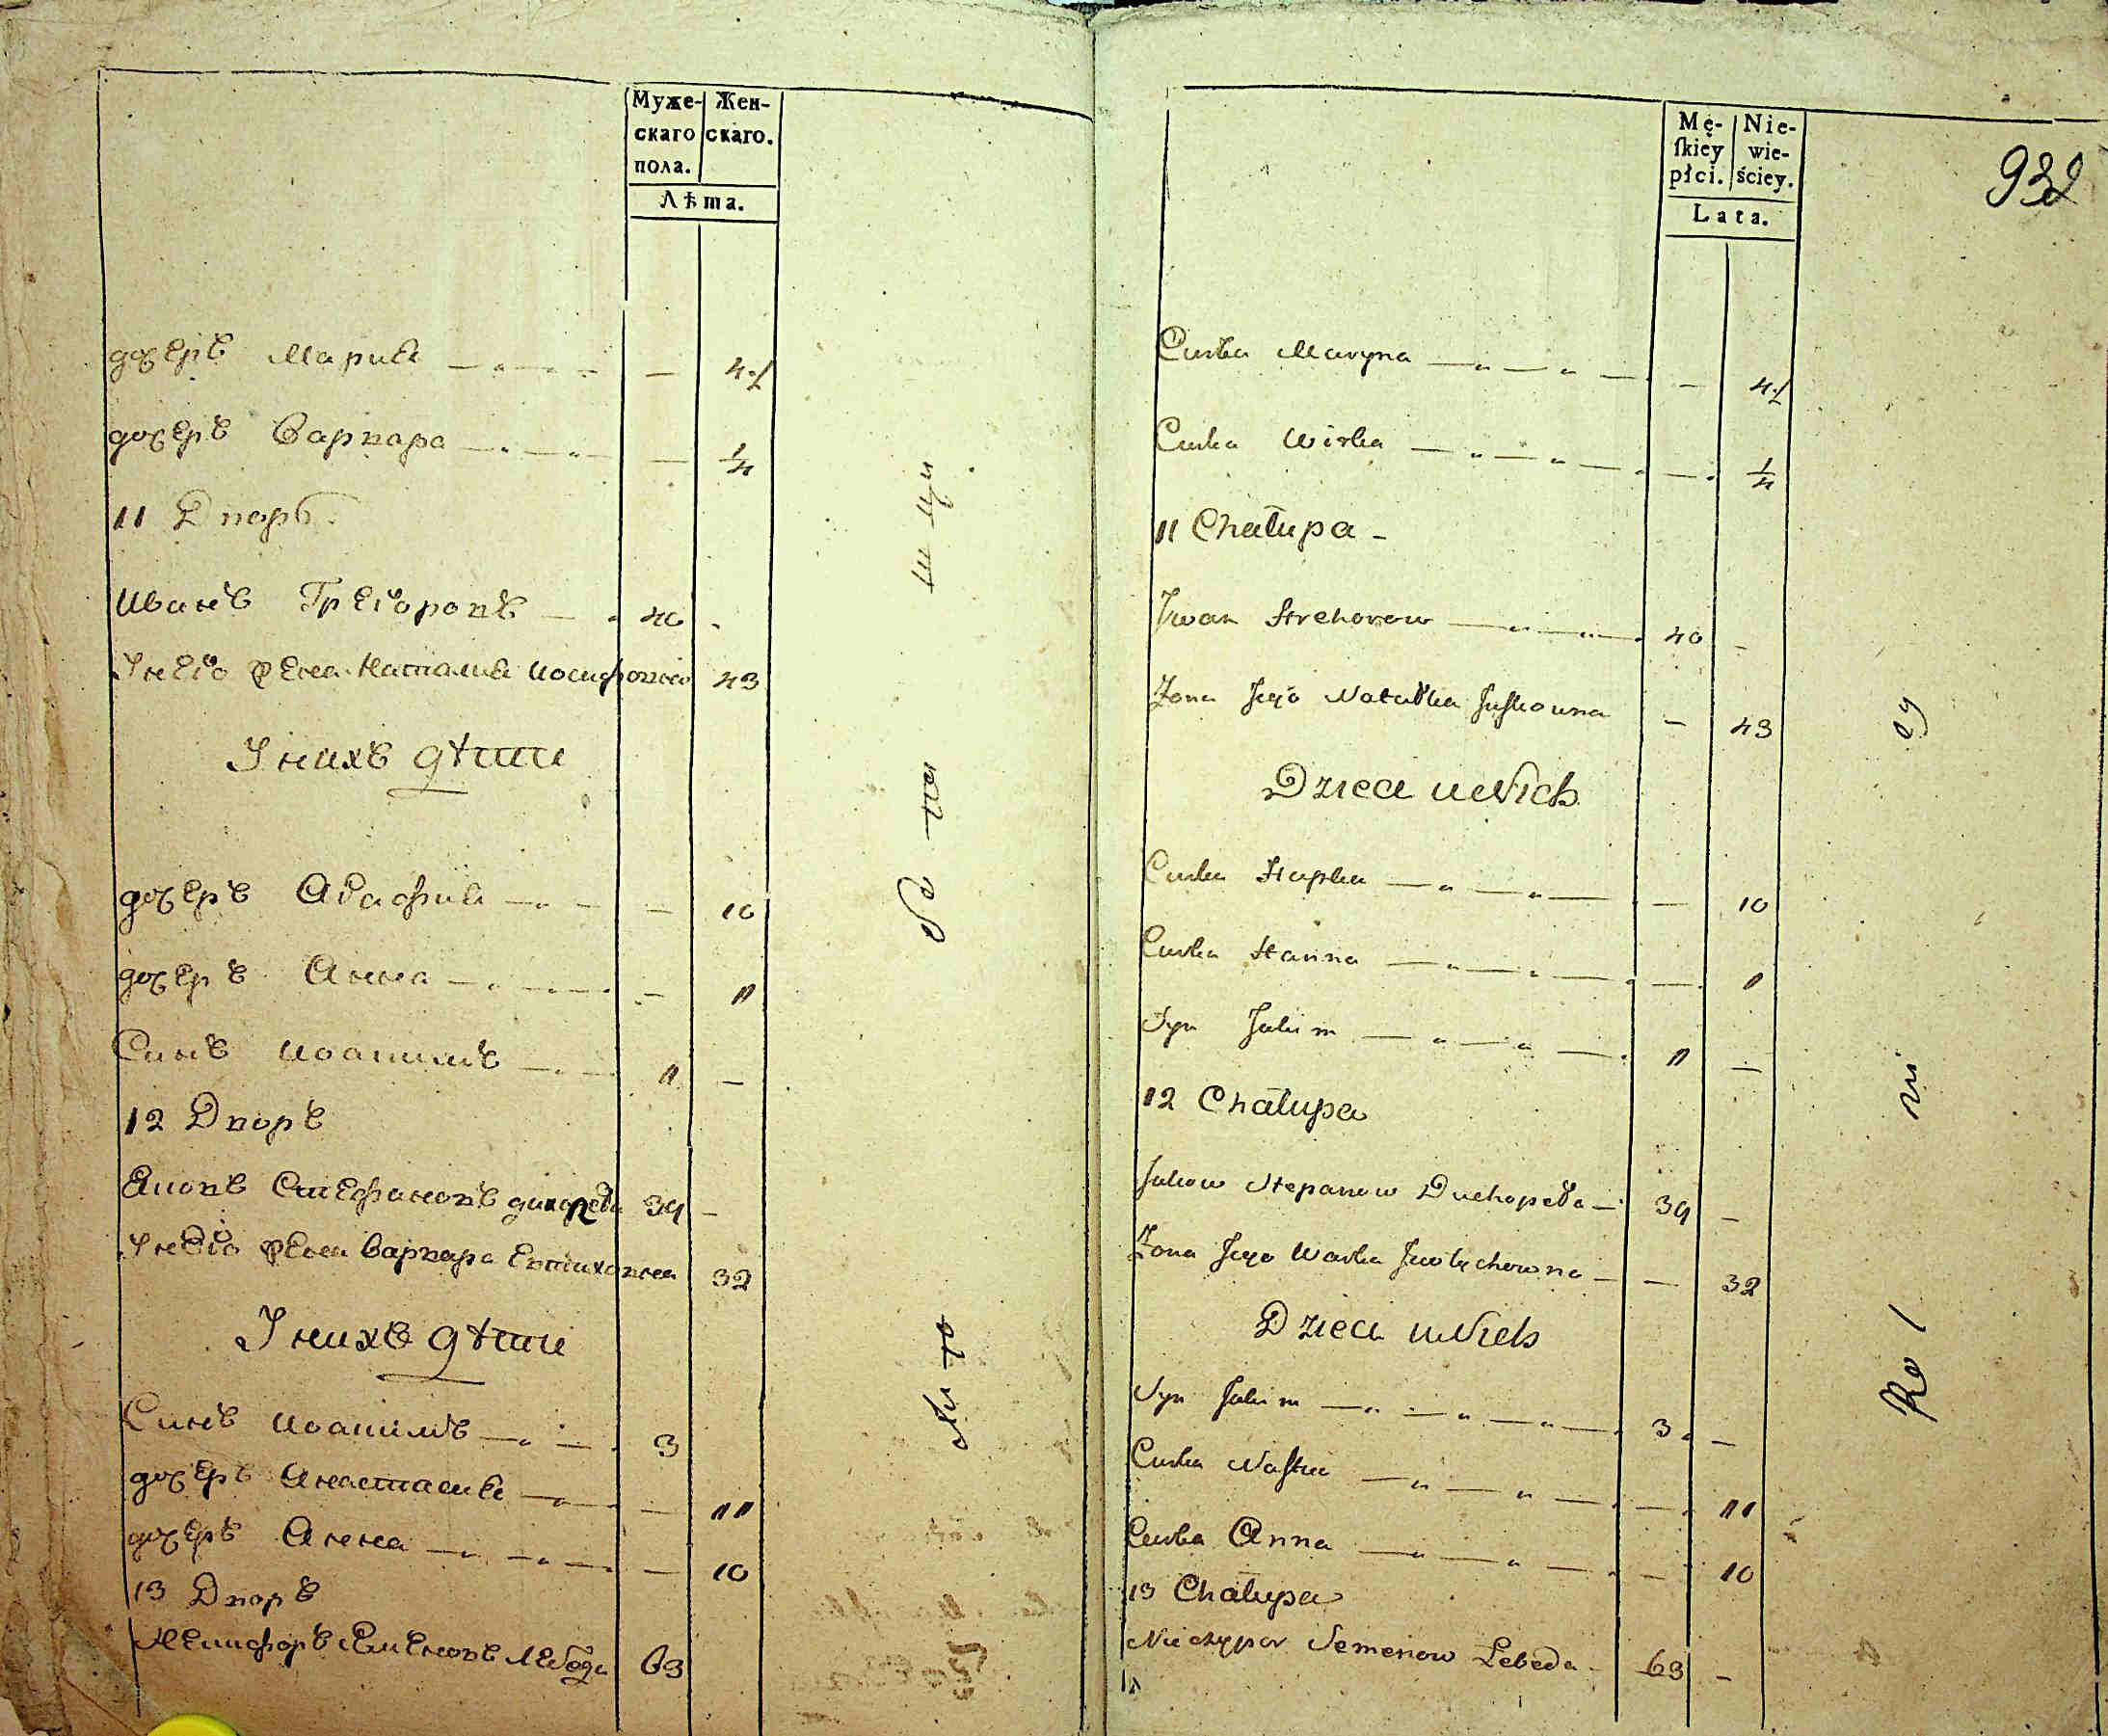 Муже- Жен-
скаго скаго.
пола.
Лѣта.
дочерь Мария — — 4 1/2
дочерь Варвара — — 1/4
11 Дворъ.
Иванъ Грегоровъ — 40 -
У него жена Наталия Иосифовна 43
У нихъ дѣти
дочерь Агафия — — 10
дочерь Анна — — 11
Синъ Иоакимъ — 11 —
12 Дворъ
Яковъ Стефановъ 39 -
У него жена Варвара Евтиховна 32
У нихъ дѣти
Синъ Иоакимъ — 3
дочерь Анастасия — — 11
дочерь Анна — — 10
13 Дворъ
Никифоръ Семеновъ Лебеда 63
Mę- Nie-
ſkiey wie-
płci. ściey.
Lata.
932
Curka Maryna — — 4 1/2
Curka Wirka — — 1/4
11 Chałupa -
Jwan Hrehorow — 40 -
Żona Jego Natałka Juſkowna — 43
Dzieci u Nich
Curka Hapka — — 10
Curka Hanna — — 11
Syn Jakim — 11 —
12 Chałupa
Jakow Stepanow Duchopeła — 39 -
Żona Jego Warka Jewtychowna — — 32
Dzieci u Nich
Syn Jakim — 3 —
Curka Naſtia — — 11
Curka Anna — — 10
13 Chałupa
Nieczypor Semenow Lebeda - 63 -